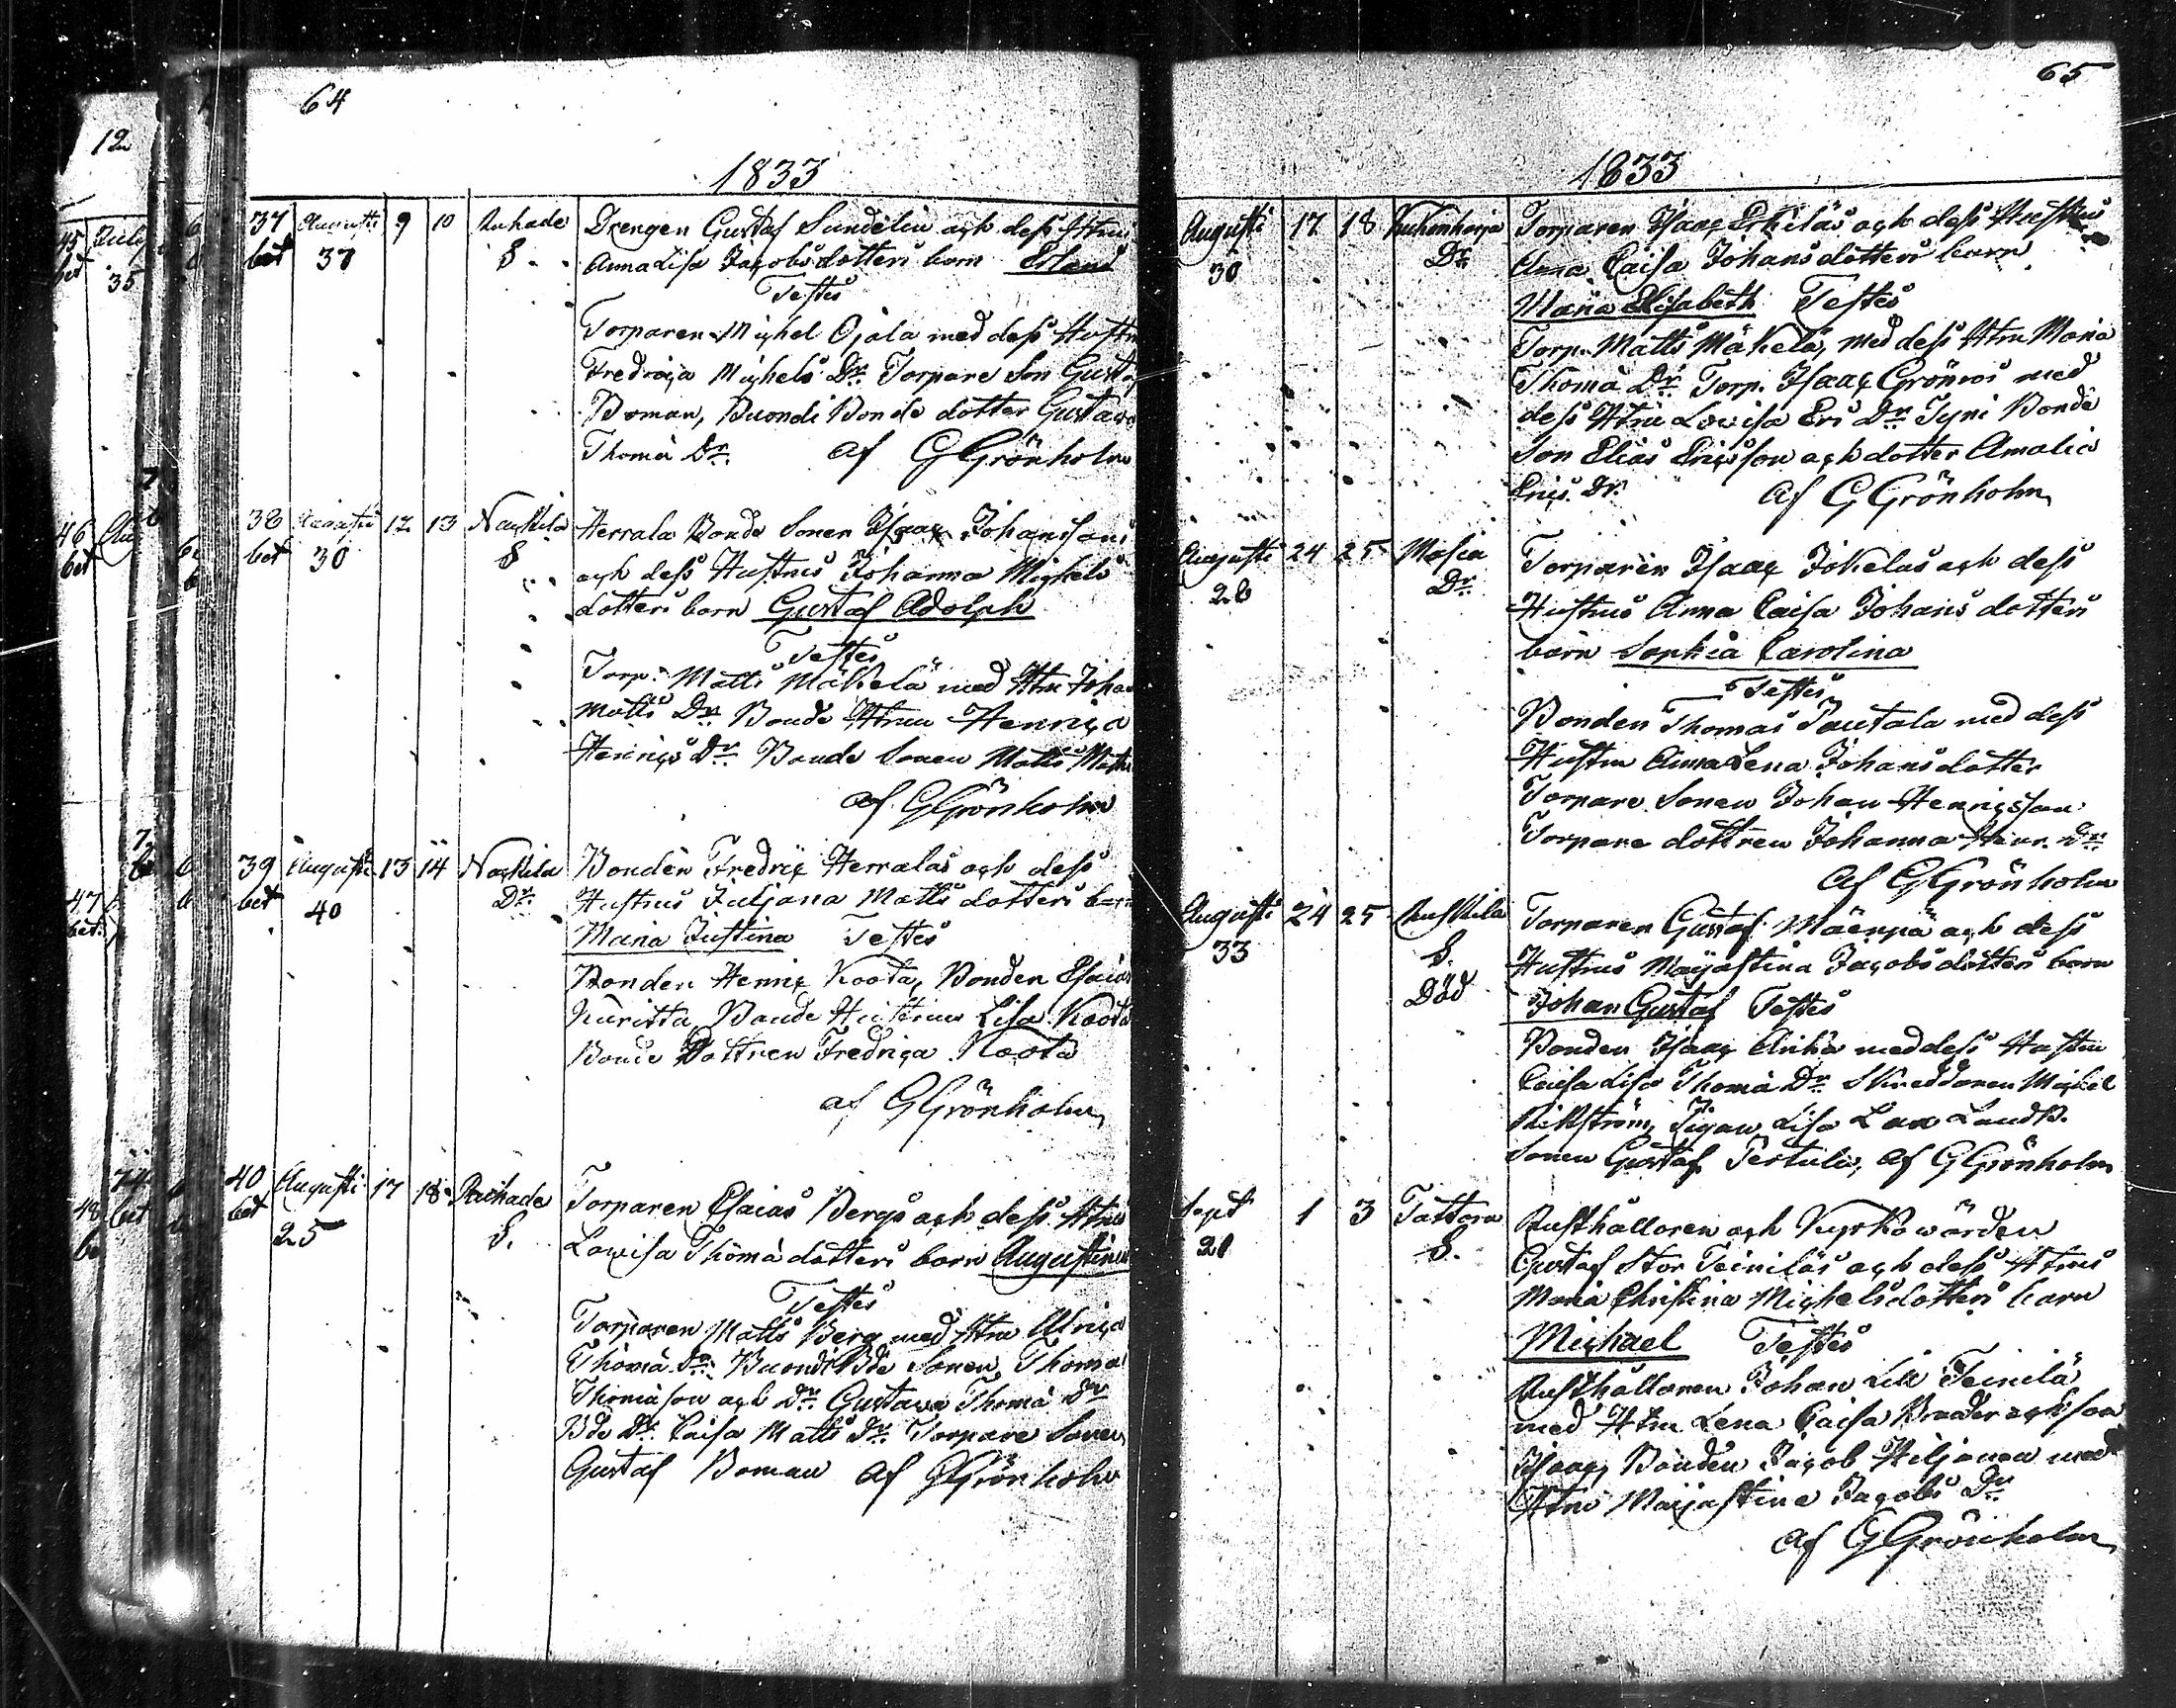 64
1833
37 Augusti 9 10 Ruhade Drengen Gustaf Sundelin och dess Hrus
bet 37 S. Anna Lisa Jacobsdotters barn Erland
Testes
Torparen Michel Ojala med dess Hustru
Fredrica Michels Dr. Torpare Son Gustaf
Boman, Buondi Bonde dotter Gustava
Thomä Dr. af G Grönholm
38 Augusti 12 13 Nackila Herrala Bonde Sonen Isaac Johanssons
bet 30 S och dess Hustrus Johanna Michels
dotters barn Gustaf Adolph
Testes
Torp. Matts Mäkelä med Hru Johan
Matts Dr. Bonde Hrun Henrica
Henrics Dr. Bonde Sonen Matts Matts
af G Grönholm
39 Augusti 13 14 Nackila Bonden Fredric Herralas och dess
bet 40 Dr. Hustrus Juljana Matts dotters barn
Maria Justina Testes
Bonden Henric Koota, Bonden Esaias
Bonde Hustrun Lisa Koota
Bonde Dottren Fredrica Koota
af G Grönholm
40 Augusti 17 18 Ruhade Torparen Esaias Bergs och dess Hrus
bet 25 S. Lovisa Thomä dotters barn Augustinus
Testes
Torparen Matts Berg med Hru Ulrica
Thomä Dr. Buondi Bde Sonen Thomas
Thomäson och Dr. Gustava Thomä Dr
Bde Dr. Caisa Matts Dr. Torpare Sonen
Gustaf Boman af G Grönholm
65
1833
Augusti 17 18 Torparen Isaac Erkiläs och dess Hustrus
30 Dr. Anna Caisa Johansdotters barn
Maria Elisabeth Testes
Torp. Matts Mäkelä, med dess Hru Maria
Thomä Dr. Torp. Isaac Grönros med
dess Hru Lovisa Eri Dr. Tyni Bonde
Son Elias Ericsson och dotter Amalia
Erics Dr. af G Grönholm
Augusti 24 25 Masia Torparen Isaac Jokelas och dess
28 Dr. Hustrus Anna Caisa Johans dotters
barn Sophia Carolina
Testes
Bonden Thomas Jautala med dess
Hustru Anna Lena Johansdotter
Torpare Sonen Johan Henricsson
Torpare dottren Johanna Henr. Dr.
af G Grönholm
Augusti 24 25 Torparen Gustaf Mäenpä och dess
33 S. Hustrus Majastina Jacobsdotters barn
Död Johan Gustaf Testes
Bonden Isaac Anhä med dess Hustru
Caisa Lisa Thomä Dr. Skreddaren Michel
Rikström, Pigan Lisa Lax Landb.
Sonen Gustaf Tertulin, af G Grönholm
Sept 1 3 Tattara Rusthållaren och Kyrkowärden
20 S. Gustaf Stor Teiniläs och dess Hrus
Maria Christina Michelsdotters barn
Michael Testes
Rusthållaren Johan Lill Teinilä
med Hru Lena Caisa Brader och son
Isaac, Bonden Jacob Hiljanen med
Hru Majastina Jacobs Dr.
af G Grönholm
12
45 July
bet 35
46 Au
bet
47
bet
48